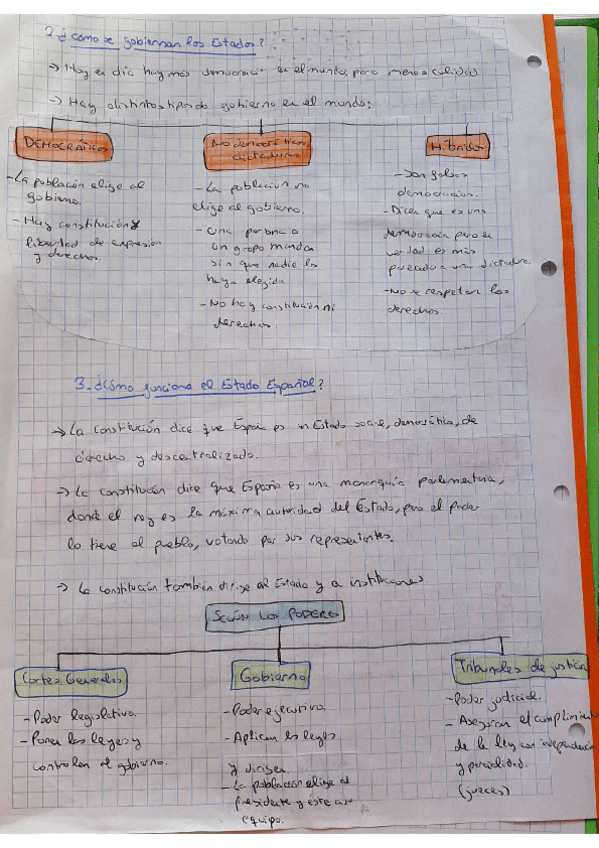 2. ¿Cómo se gobiernan los Estados?
→ Hoy en día hay más democracia en el mundo, pero menos calidad.
→ Hay distintos tipos de gobierno en el mundo:
DEMOCRÁTICOS
- La población elige al
gobierno.
- Hay constitución y
libertad de expresión
y derechos.
No democráticos,
dictaduras
- La población no
elige al gobierno.
- Una persona o
un grupo mandan
sin que nadie los
haya elegido
- No hay constitución ni
derechos
Híbridos
- Son falsas
democracias.
- Dicen que es una
democracia pero en
verdad es más
parecado a una dictadura.
- No se respetan los
derechos.
3. ¿Cómo funciona el Estado Español?
→ La constitución dice que España es un Estado social, democrático, de
derecho y descentralizado.
→ La constitución dice que España es una monarquía parlamentaria,
donde el rey es la máxima autoridad del Estado, pero el poder
lo tiene el pueblo, votando por sus representantes.
→ La constitución también dirige al Estado y a instituciones
SEGÚN LOS PODERES
Cortes Generales
- Poder legislativo.
- Ponen las leyes y
controlan al gobierno.
Gobierno
- Poder ejecutivo.
- Aplican las leyes
y dirigen
- La población elige al
presidente y este a su
equipo.
Tribunales de justicia
- Poder judicial.
- Aseguran el cumplimiento
de la ley con independencia
y parcialidad.
(jueces)